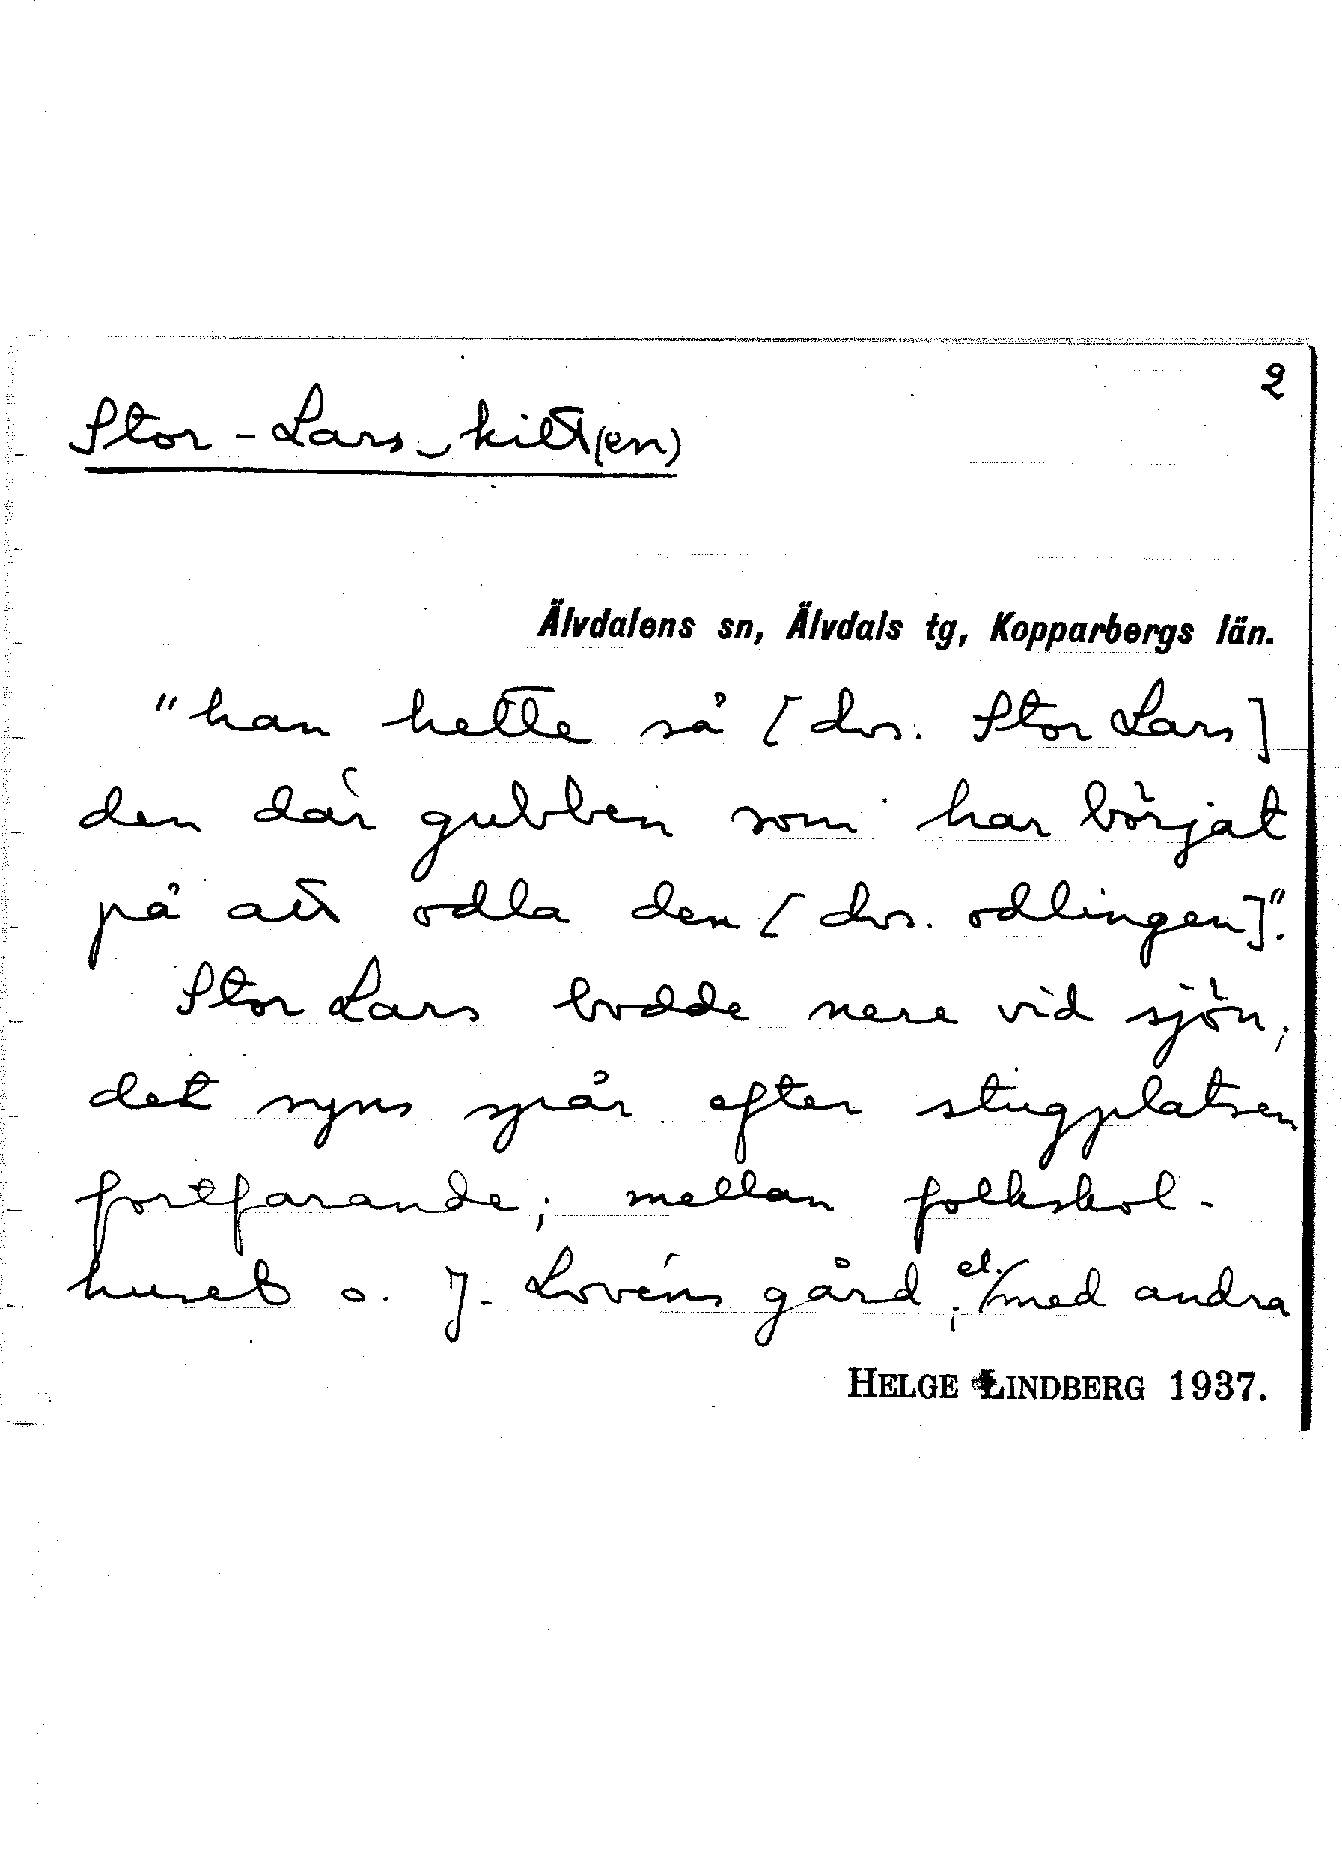 2
Stor-Lars-kitt(en)
Älvdalens sn, Älvdals tg, Kopparbergs län.
"han hette så [dvs. Stor Lars]
den där gubben som har börjat
på att odla den [dvs. odlingen]".
Stor Lars bodde nere vid sjön;
det syns spår efter stugplatsen
fortfarande; mellan folkskol-
huset o. J. Lovéns gård; el. /med andra
HELGE LINDBERG 1937.